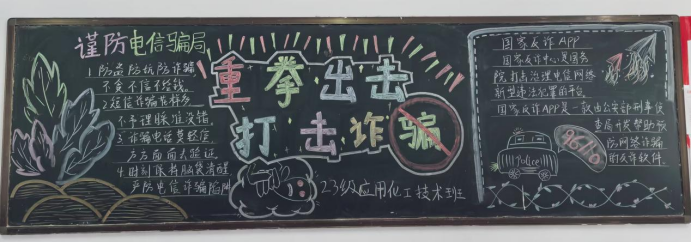 谨防电信骗局
1.防盗防抗防诈骗
不贪不信不给钱。
2.短信诈骗花样多
不予理睬准没错
3.诈骗电话莫轻信
方方面面去验证
4.时刻保持脑袋清醒
严防电信诈骗陷阱
重拳出击
打击诈骗
23级应用化工技术班
国家反诈APP
国家反诈中心是国务
院打击治理电信网络
新型违法犯罪的平台
国家反诈APP是一款由公安部刑事侦
查局开发帮助预
防网络诈骗
的反诈软件.
Police
96110